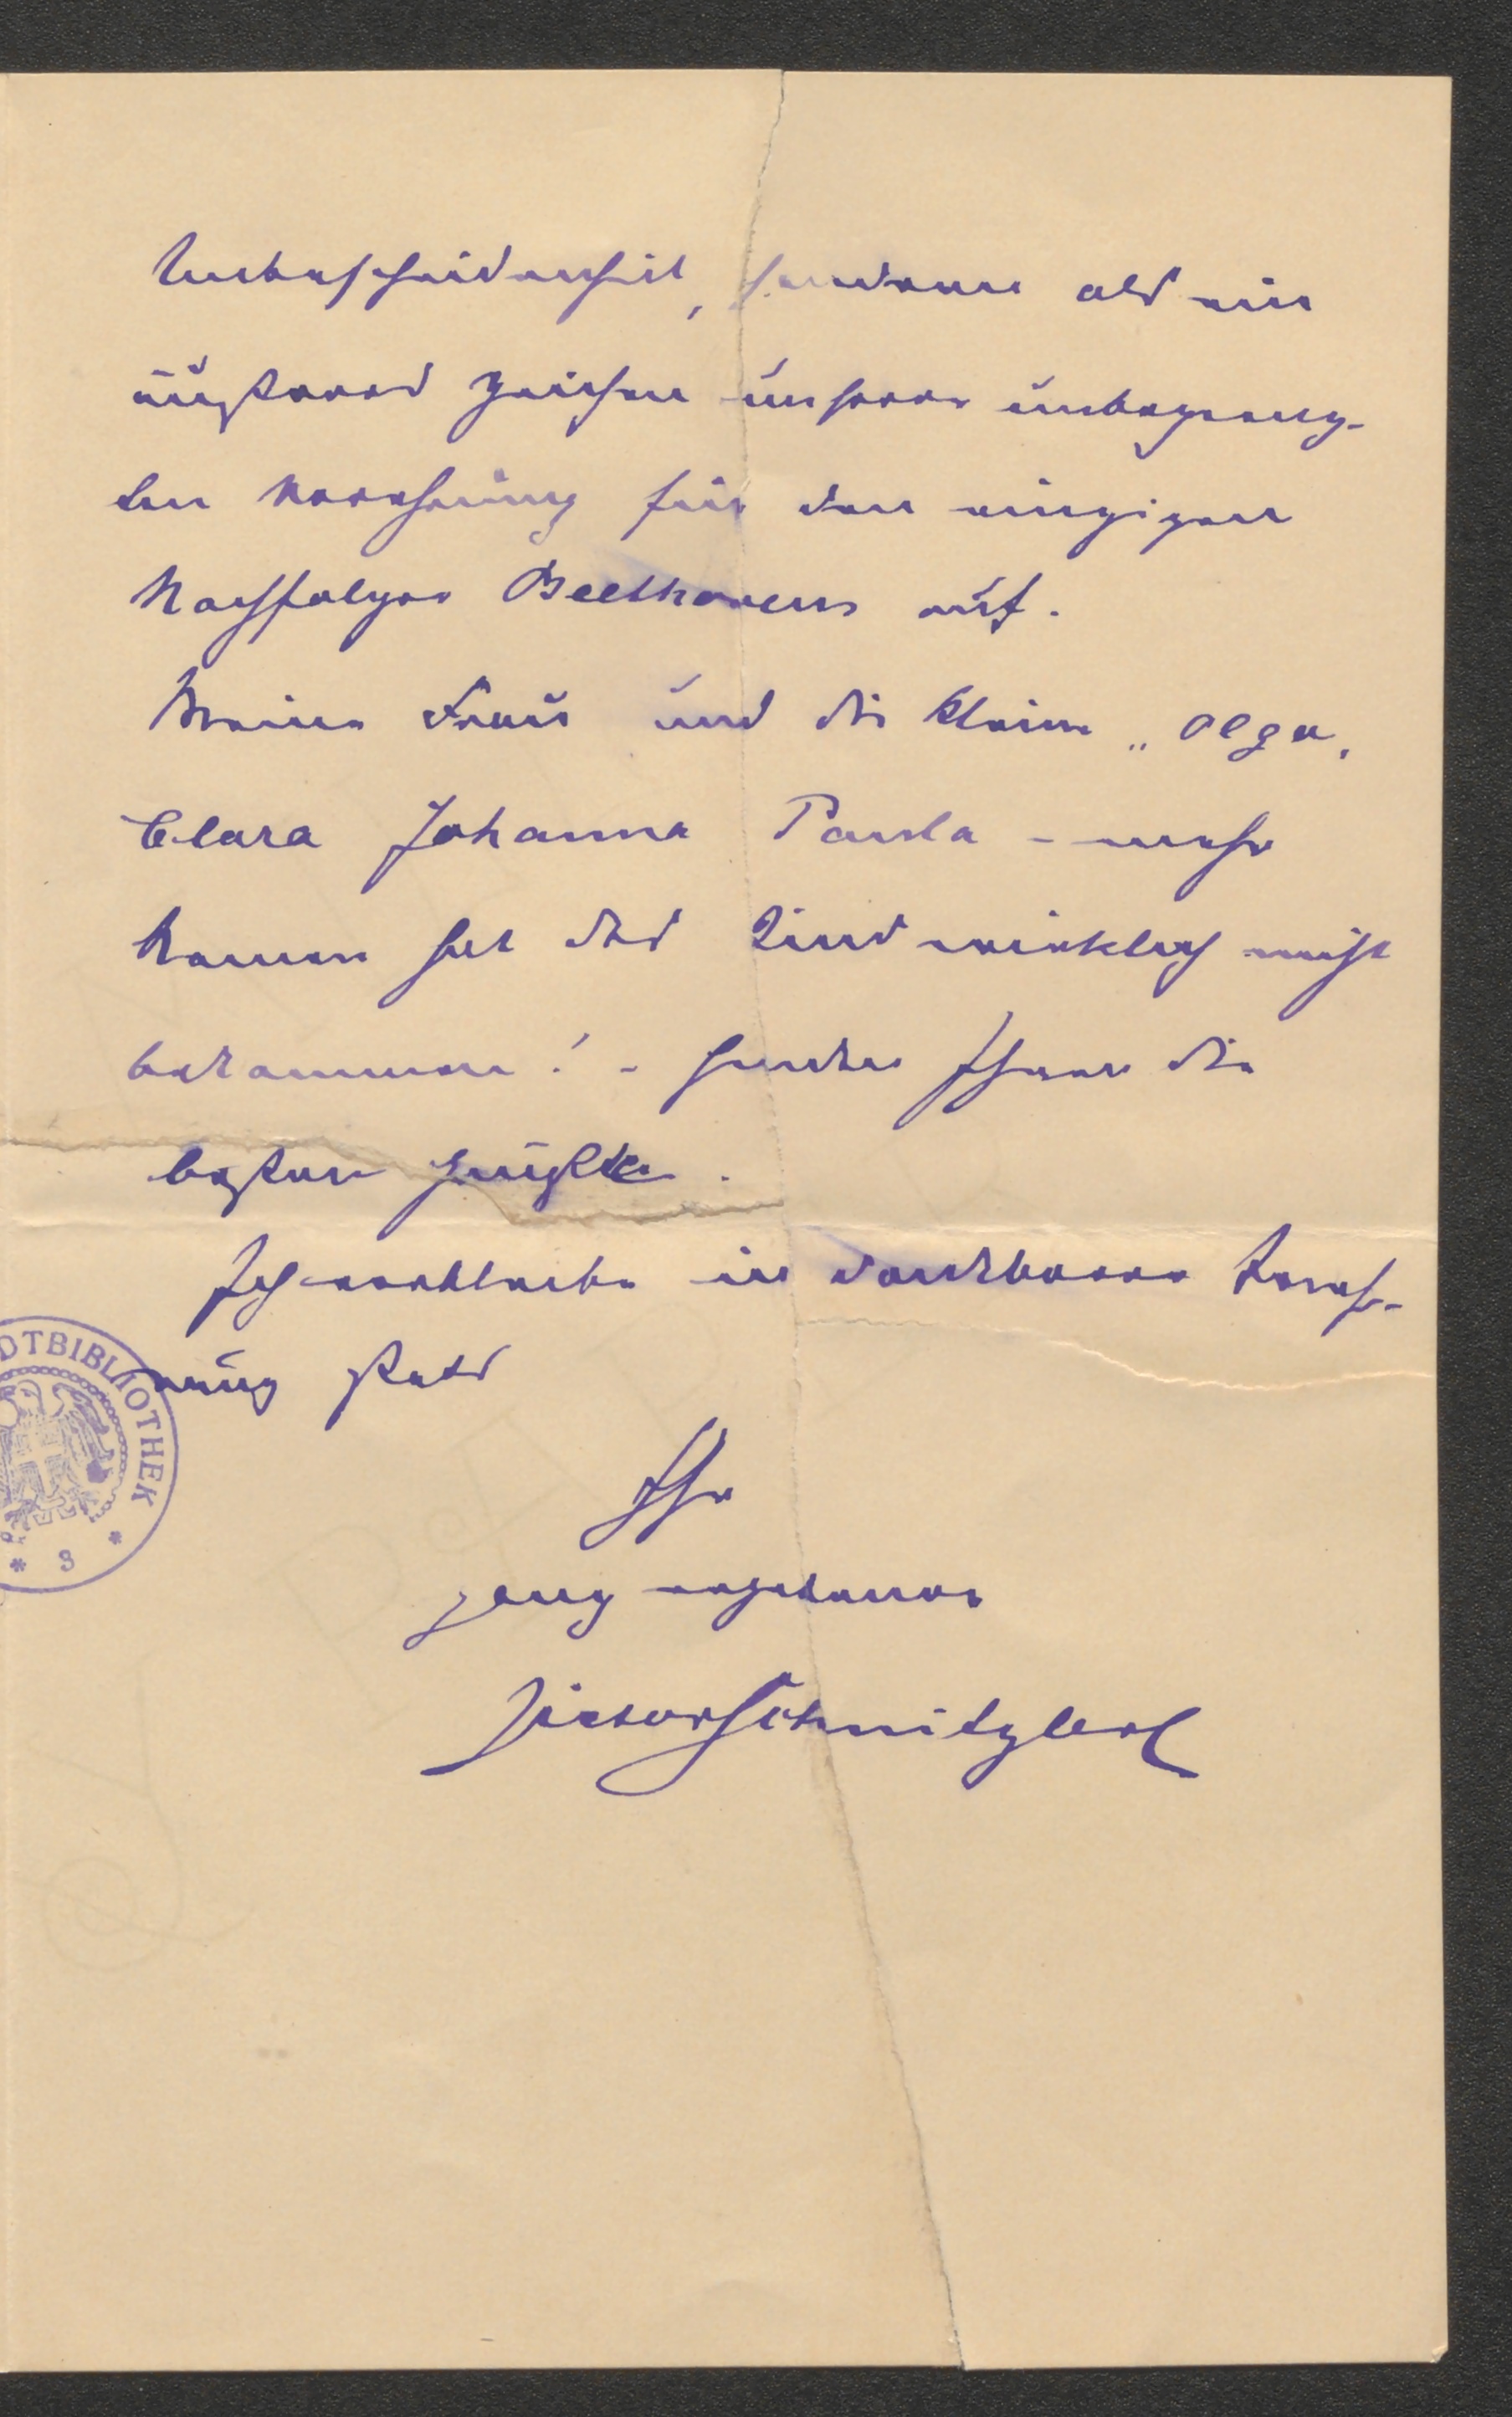 Unbescheidenheit, sondern als ein
äußeres Zeichen unserer unbegrenz-
ten Verehrung für den einzigen
Nachfolger Beethovens auf.
Meine Frau und die kleine „Olga,
Clara Johanna Paula – mehr
Namen hat das Kind wirklich nicht
bekommen! – senden Ihnen die
besten Grüße.
Ich verbleibe in dankbarer Vereh-
rung stets
Ihr
ganz ergebener
Victor Schnitzler
DTBIBLIOTHEK
* 3 *